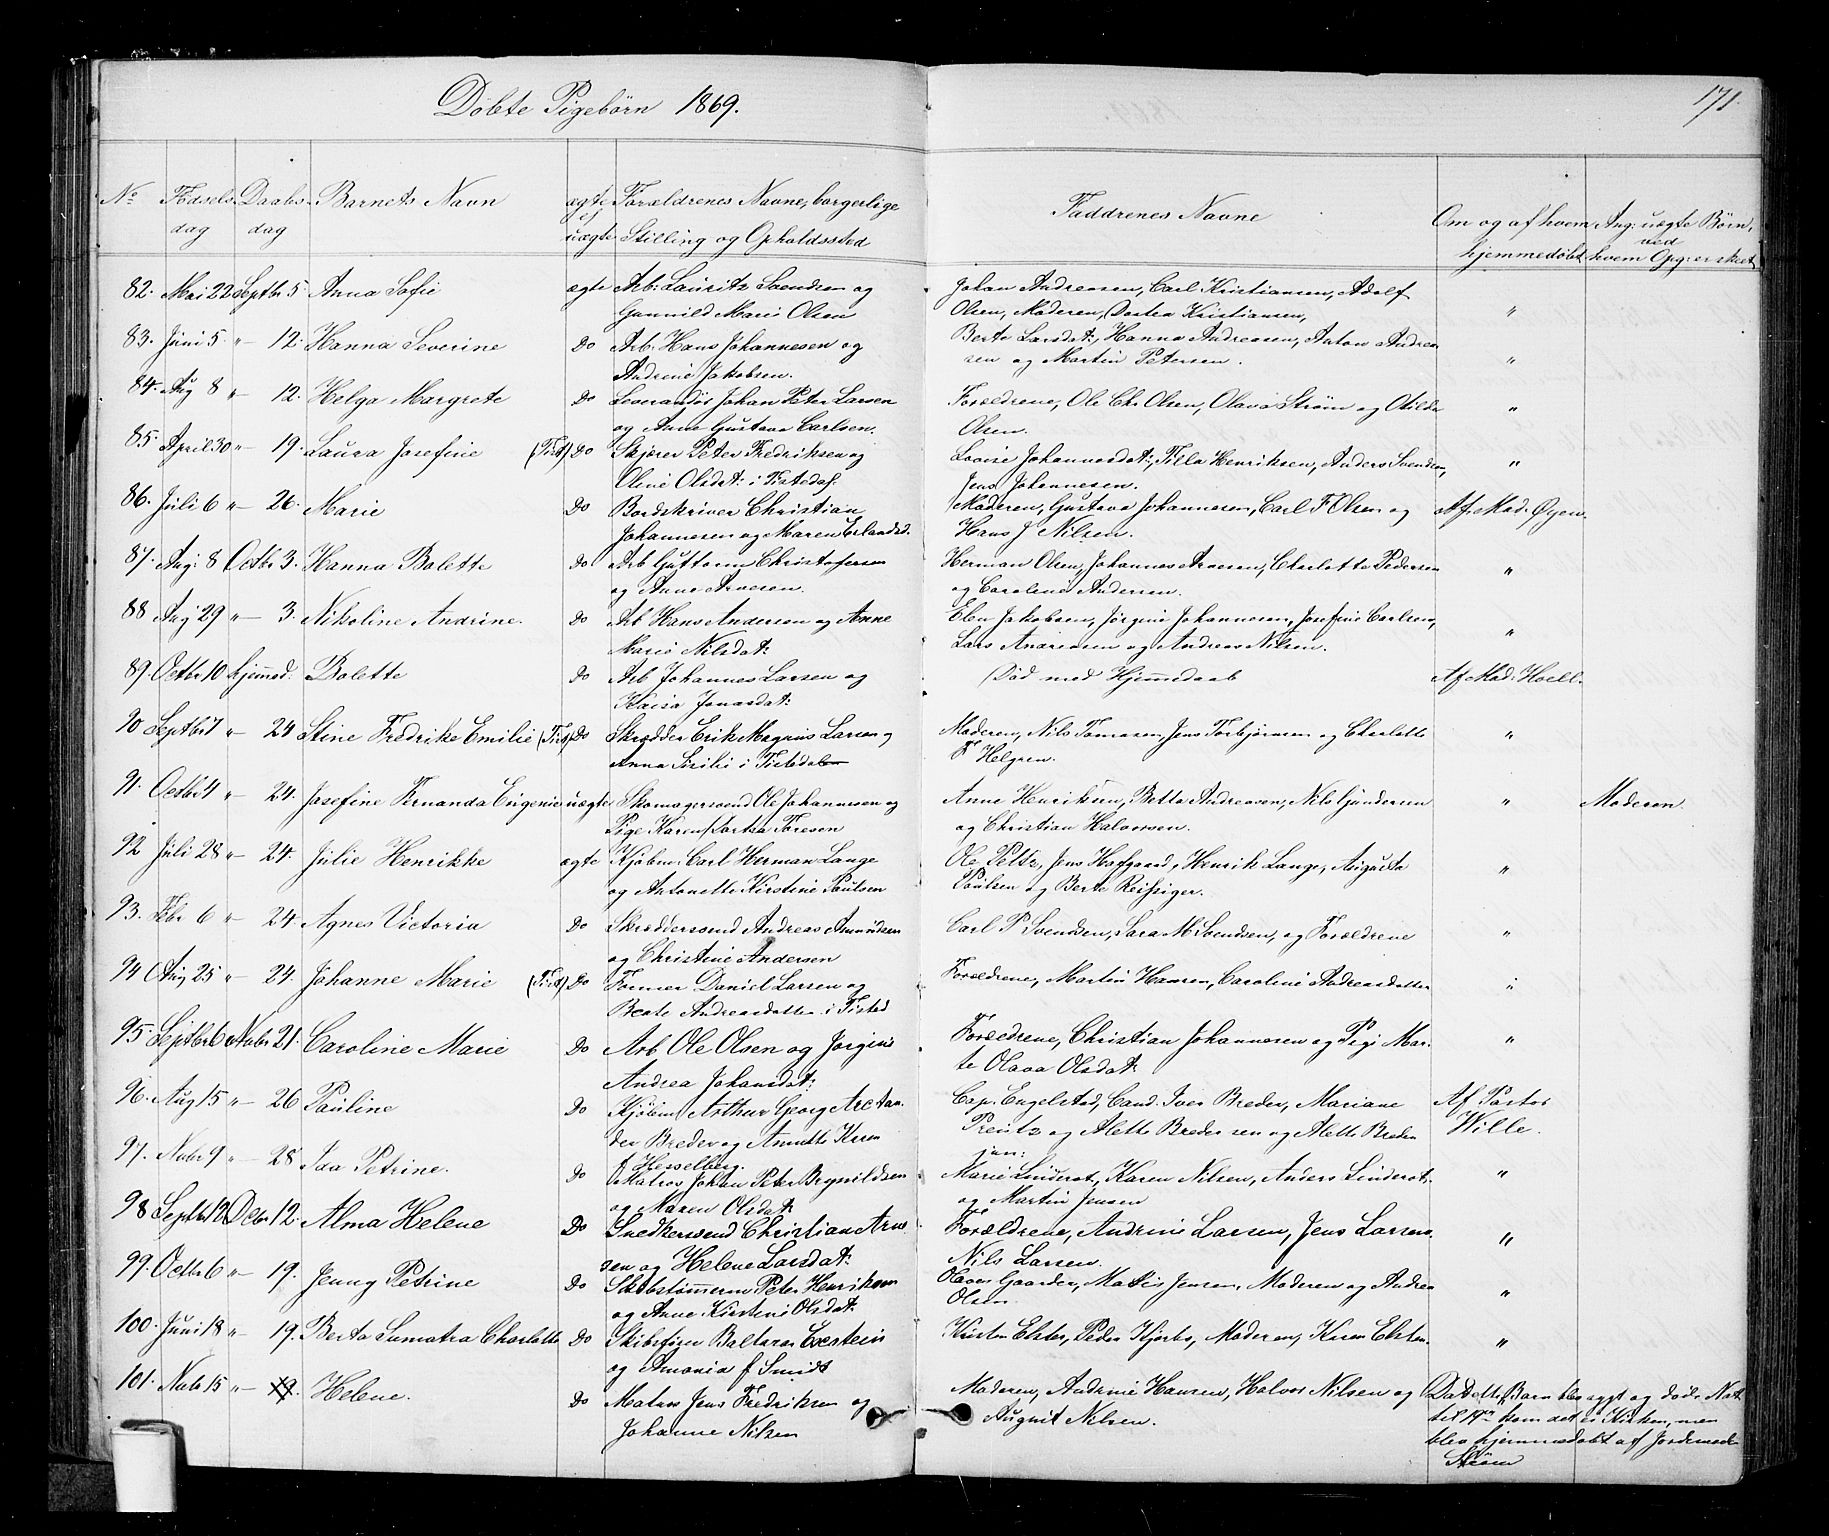 Døbte Pigebørn 1869.
171.
No Fødsels dag Daabs dag Barnets Navn ægte ej uægte Forældrenes Navne, borgerlige Stilling og Opholdssted Faddrenes Navne Om og af hvem hjemmedøbt Ang: uægte Børn, ved hvem Opg: er skeet
82. Mai 22 Septbr 5. Anna Sofie ægte Arb: Lauritz Svendsen og Johan Andreasen, Carl Kristiansen, Adolf
Gunnild Marie Olsen Olsen, Moderen, Dortea Kristiansen, "
83. Juni 5 " 12. Hanna Severine Do Arb. Hans Johannesen og Berte Larsdat:, Hanna Andreasen, Anton Andrea
Andrine Jakobsen. sen og Martin Petersen. "
84. Aug 8 " 12. Helga Margrete Do Leverandør Johan Peter Larsen Forældrene, Ole Chr. Olsen, Olava Strøm og Otilde "
og Anne Gustava Carlsen. Olsen.
85. April 30 " 19. Laura Josefine (Tist) Do Skjører Peter Fredriksen og Lovise Johannesdat:, Tilla Henriksen, Anders Svendsen, "
Oline Olsdat: i Tistedal. Jens Johannesen.
86. Juli 6 " 26. Marie Do Bordskriver Christian Moderen, Gustava Johannesen, Carl F Olsen og Af Mad: Øyen.
Johannesen og Maren Erlandsd. Hans J Nilsen.
87. Aug: 8 Octbr 3. Hanna Bolette Do Arb Guttorm Christofersen Herman Olsen, Johannes Arnesen, Charlotte Pedersen "
og Anne Arnesen. og Caroline Andersen.
88 Aug 29 " 3. Nikoline Andrine. Do Arb Hans Andersen og Anne Elen Jakobsen, Jørgine Johannesen, Josefine Carlsen, "
Marie Nilsdat: Lars Andreasen og Andreas Nilsen.
89. Octbr 10 hjemmd. Bolette Do Arb Johannes Larsen og Død med Hjemmedaab Af Mad: Hoell.
Kaisa Jonasdat:
90 Septbr 1 " 24 Stine Fredrikke Emilie (Tist) Do Skrædder Erik Magnus Larsen og Moderen, Nils Tomasen, Jens Torbjørnsen og Charlotte "
Anna Sisilie i Tistedalen F Helgren.
91. Octbr 4 " 24. Josefine Fernanda Eugenie uægte Skomagersvend Ole Johannesen og Anne Henriksen, Bette Andreasen, Nils Gundersen " Moderen.
Pige Karen Dortea Toresen og Christian Halvorsen.
92 Juli 28 " 24. Julie Henrikke ægte Kjøbm: Carl Herman Lange Ole Peltz, Jens Hofgaard, Henrik Lange, Augusta "
og Antonette Kirstine Paulsen Paulsen og Berte Reissiger.
93. Febr 6 " 24 Agnes Victoria Do Skræddersvend Andreas Amundsen Carl P Svendsen, Sara M Svendsen, og Forældrene "
og Christine Andersen
94 Aug 25 " 24. Johanne Marie (Tist) Do Former Daniel Larsen og Forældrene, Martin Hansen, Caroline Andreasdatter "
Beate Andreasdatter i Tisted
95. Septbr 6 Novbr 21. Caroline Marie Do Arb Ole Olsen og Jørgine Forældrene, Christian Johannesen og Pige Mar- "
Andrea Johansdat: te Olava Olsdat:
96. Aug 15 " 26 Pauline Do Kjøbm: Arthur Georg Arctan- Cap. Engelstad, Cand. Iver Breder, Mariane Af Pastor
der Breder og Annette Karen Preutz og Alette Breder sen og Alette Breder Wille.
f Hesselberg. jun:
97. Novbr 9 " 28 Ida Petrine. Do Matros Johan Peter Brynildsen Marie Linderot, Karen Nilsen, Anders Linderot, "
og Maren Olsdat: og Martin Jensen
98 Septbr 12 Decbr 12. Alma Helene Do Snedkersvend Christian Arne Forældrene, Andrine Larsen, Jens Larsen "
sen og Helene Larsdat: Nils Larsen.
99. Octbr 6 " 19. Jenny Petrine Do Skibstømerm Peter Henriksen Olaves Gaarder, Mathis Jensen, Moderen og Andrea "
og Anne Kirstine Olsdat: Olsen.
100. Juni 18 " 19. Berta Sumatra Charlotte Do Skibsfører Baltazar Everstein Kirsten Elster, Peder Kjerbo, Moderen, Karen Elsten. "
og Amania f Smidt
101. Novbr 15 " Helene. Do Matros Jens Fredriksen og Moderen, Andrine Hansen, Halvor Nilsen og Da dette Barn blev sygt og døde Nat
Johanne Nilsen August Nilsen. til 19de kom det ei i Kirken, men
blev hjemmedøbt af Jordemoder
Strøm